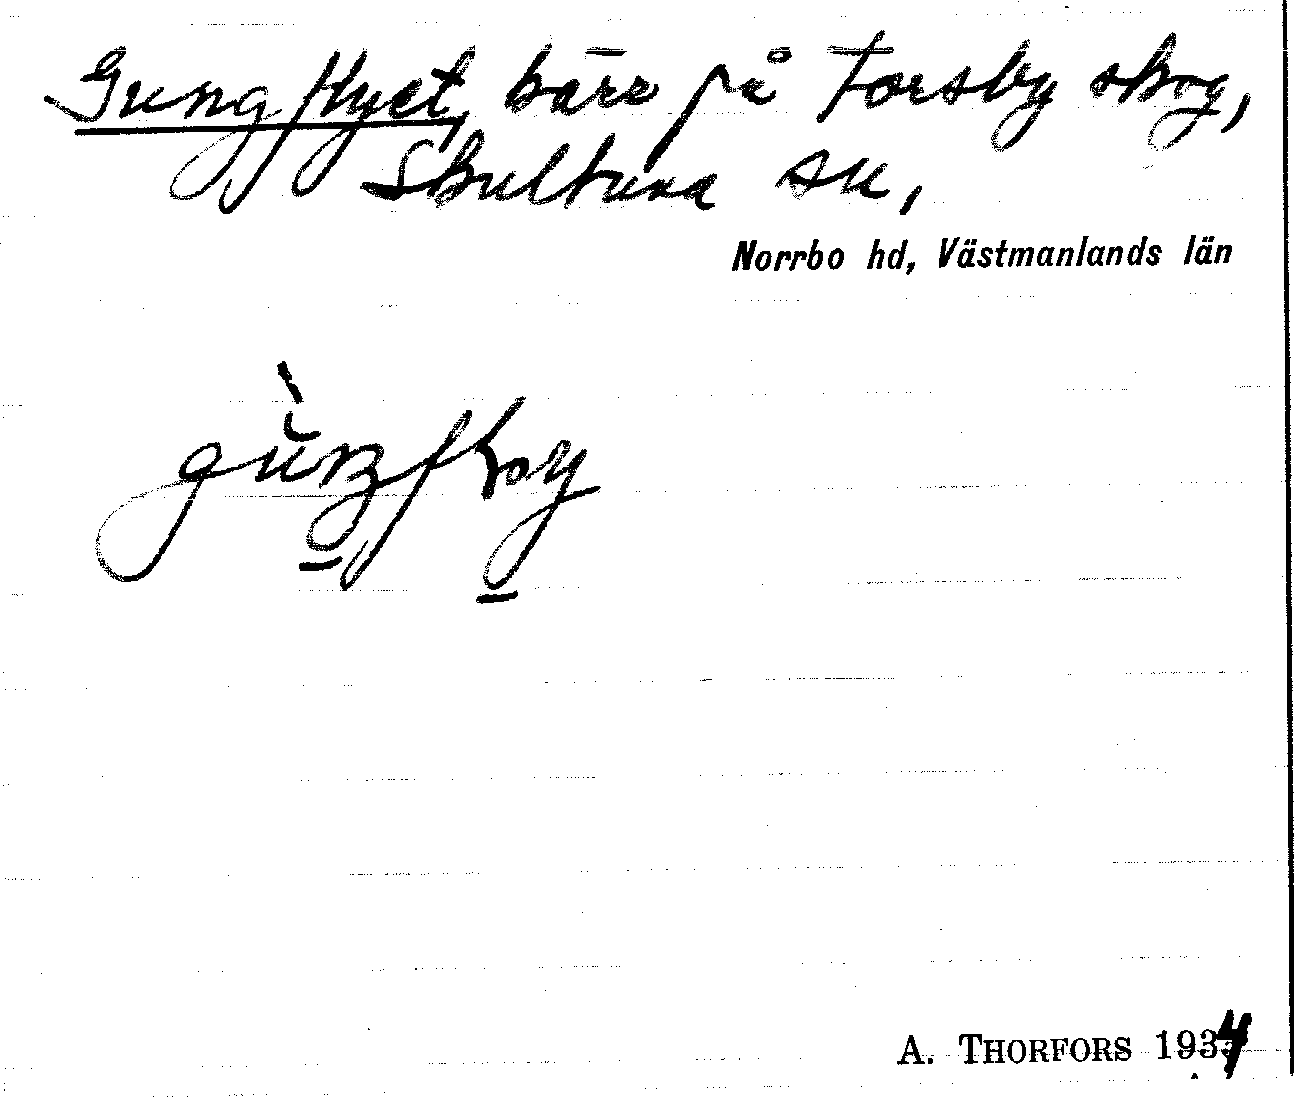 Gungflyet, kärr på Torsby skog,
Skultuna sn,
Norrbo hd, Västmanlands län
A. THORFORS 1934